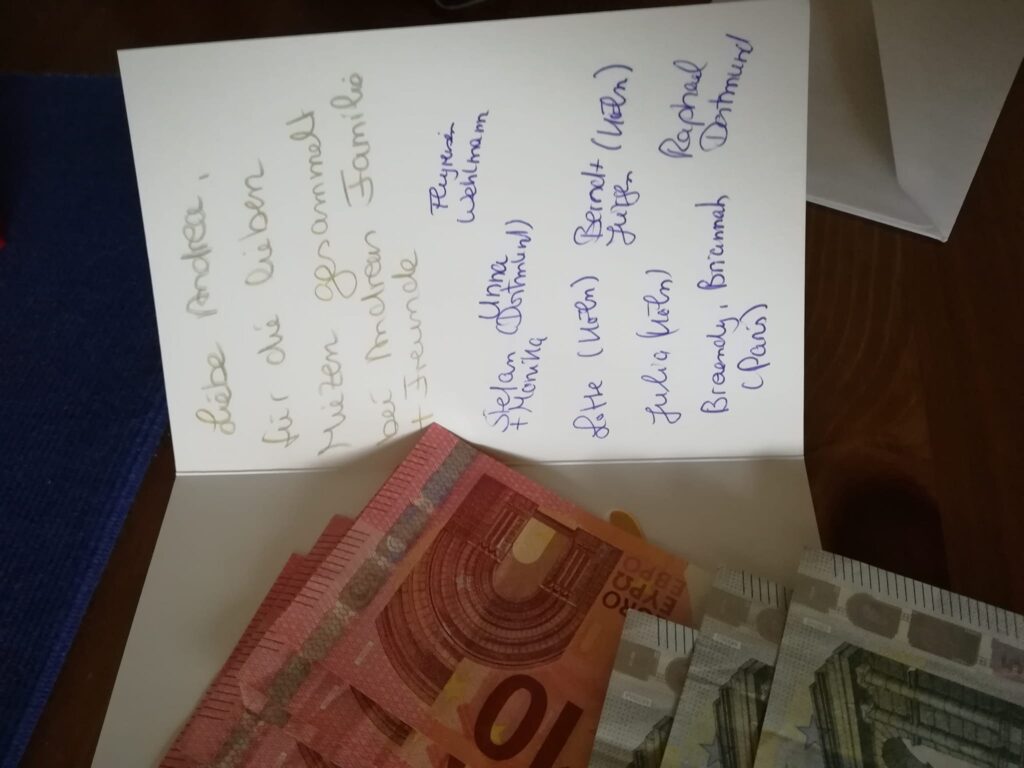 Liebe Andrea,
für die lieben
Miezen gesammelt
bei Andreas Familie
+ Freunde
Wehlmann
Stefan Unna
+ Monika (Dortmund)
Lotte (Köln) Bernd + (Köln)
Jürgen
Julia (Köln) Raphael
Dortmund
Braendy, Briannah
(Paris)
10
EURO
ΕΥΡΩ
ЕВРО